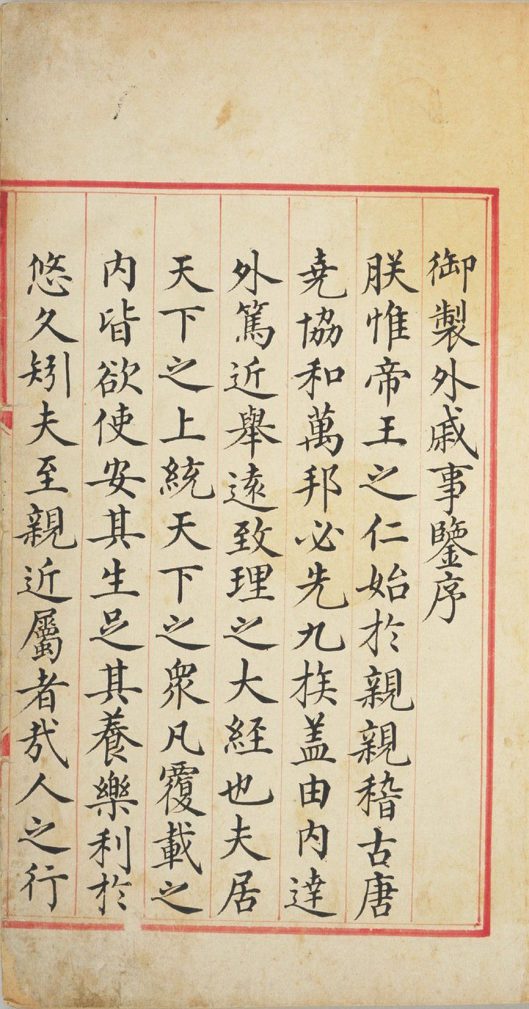 御製外戚事鑒序
朕惟帝王之仁始於親親稽古唐
堯協和萬邦必先九族盖由内達
外篤近舉遠致理之大經也夫居
天下之上統天下之衆凡覆載之
内皆欲使安其生足其養樂利於
悠久矧夫至親近屬者㦲人之行